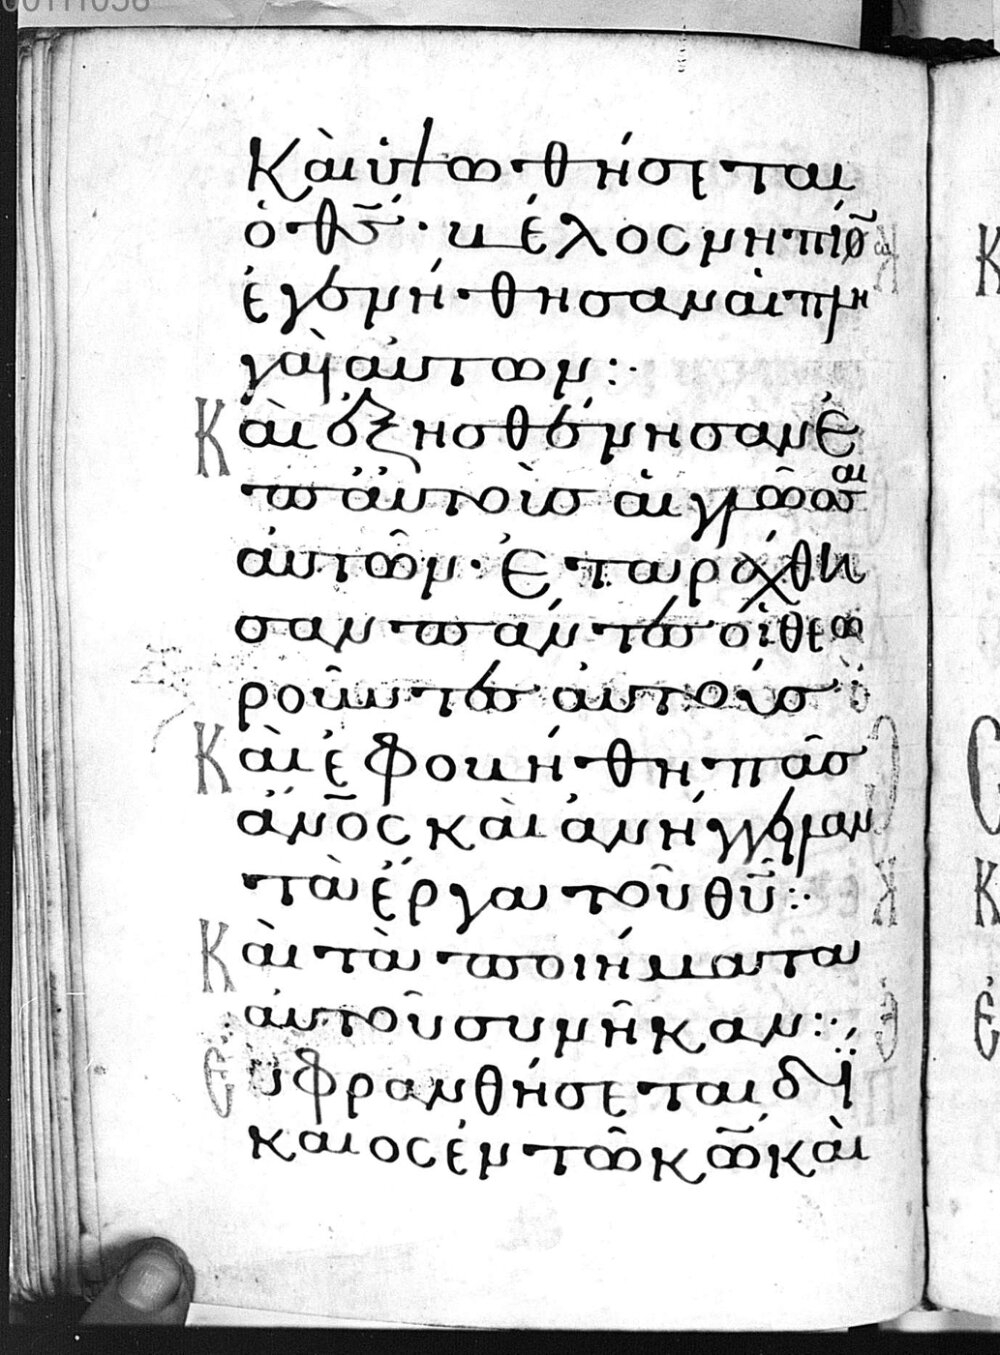 Καὶ ὑψωθήσεται
ὁ θς̃· βέλος νηπίω̃
ἐγενήθησαν αἱ πλη
γαὶ αὐτων:·
Καὶ ἐξησθένησαν ἐ
π ἀυτοὺσ αἱ γλῶσσαι
ἀυτῶν· Ἐταράχθη
σαν πάντεσ οἱ θεω
ροῦντεσ ἀυτούσ·
Καὶ ἐφοβήθη πᾶσ
ἄν̅ο̅ς καὶ ἀνήγγειλαν
τὰ ἔργα τοῦ θυ̃:·
Καὶ τὰ ποιήματα
ἀυτοῦ συνῆκαν:·
Εὐφρανθήσεται δί
καιος ἐν τῶ κω̃ καὶ